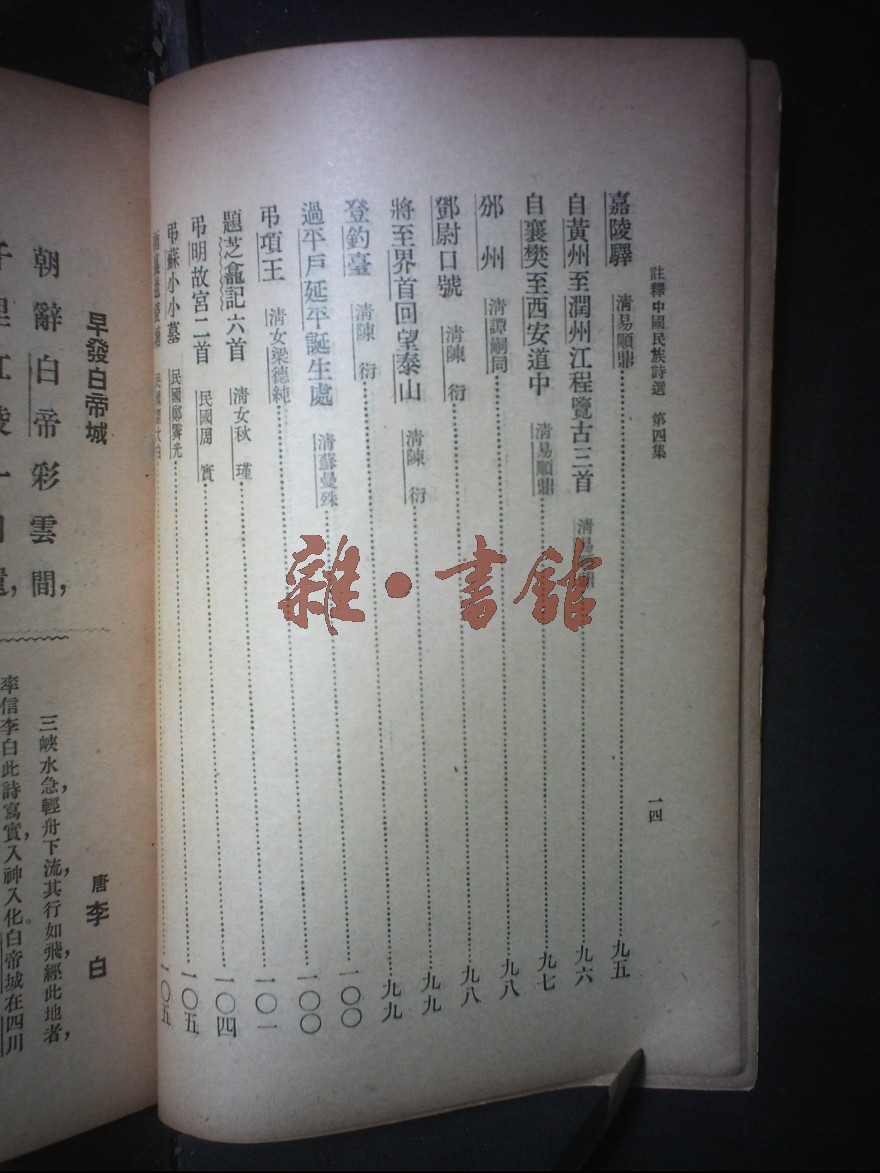 註釋中國民族詩選 第四集 一四
嘉陵驛 清易順鼎 九五
自黃州至潤州江程覽古三首 清易順鼎 九六
自襄樊至西安道中 清易順鼎 九七
邠州 清譚嗣同 九八
鄧尉口號 清陳衍 九八
將至界首回望泰山 清陳衍 九九
登釣臺 清陳衍 九九
過平戶延平誕生處 清蘇曼殊 一〇〇
弔項王 清女梁德純 一〇〇
題芝龕記六首 清女秋瑾 一〇一
弔明故宮二首 民國周實 一〇四
弔蘇小小墓 民國鄭霽光 一〇五
一〇五
早發白帝城 唐 李白
朝辭白帝彩雲間，
千里江陵一日還，
三峽水急，輕舟下流，其行如飛，經此地者，
率信李白此詩寫實，入神入化。白帝城在四川
雜·書館